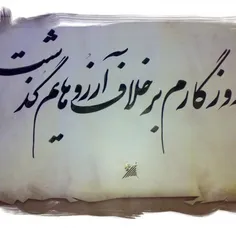 روزگارم برخلاف آرزوهایم گذشت